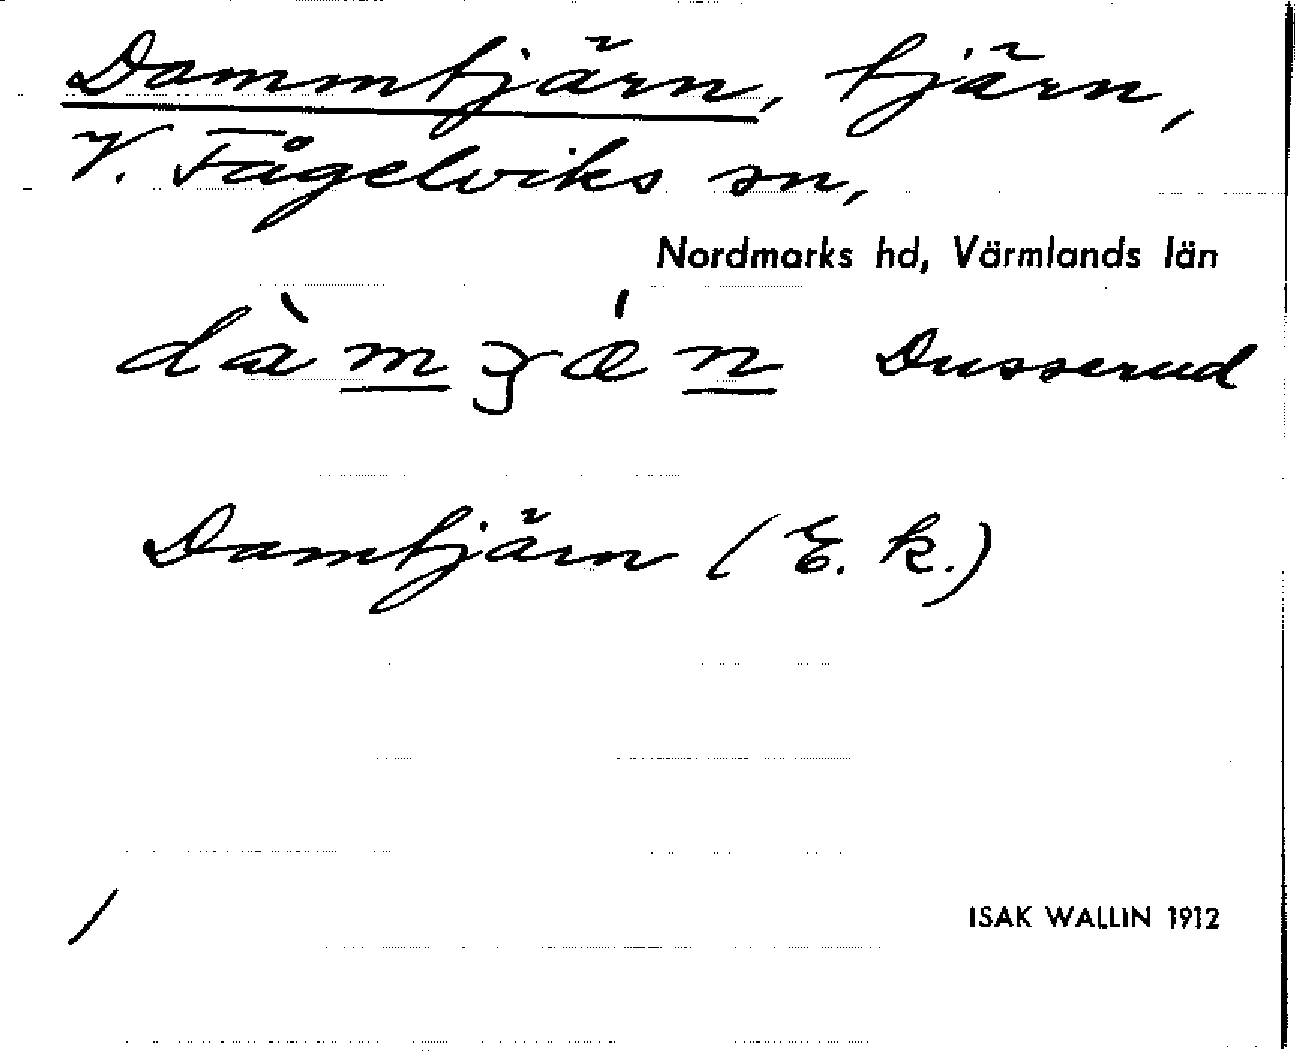 Dammtjärn, tjärn,
V. Fågelviks sn,
Nordmarks hd, Värmlands län
dàmʒǽn Dusserud
Damtjärn (E. k.)
ISAK WALLIN 1912